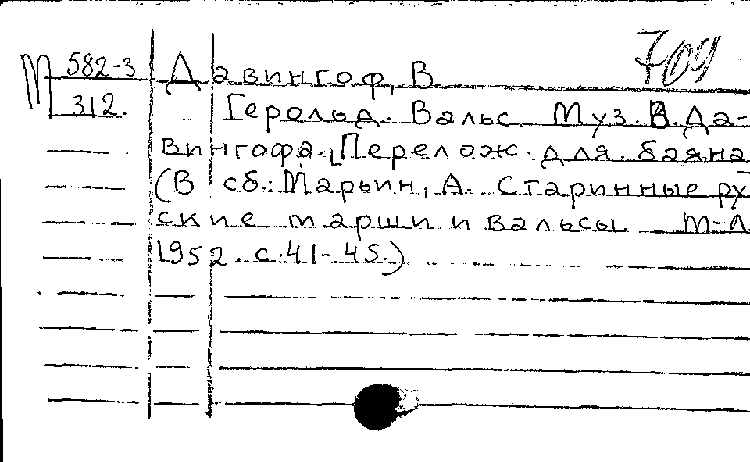 М 582-3 Давингоф, В 709
312. Герольд. Вальс Муз. В. Да-
вингофа. [Перелож. для баяна
(В сб.: Марьин, А. Старинные рус
ские марши и вальсы М-Л
1952. с. 41-45.)